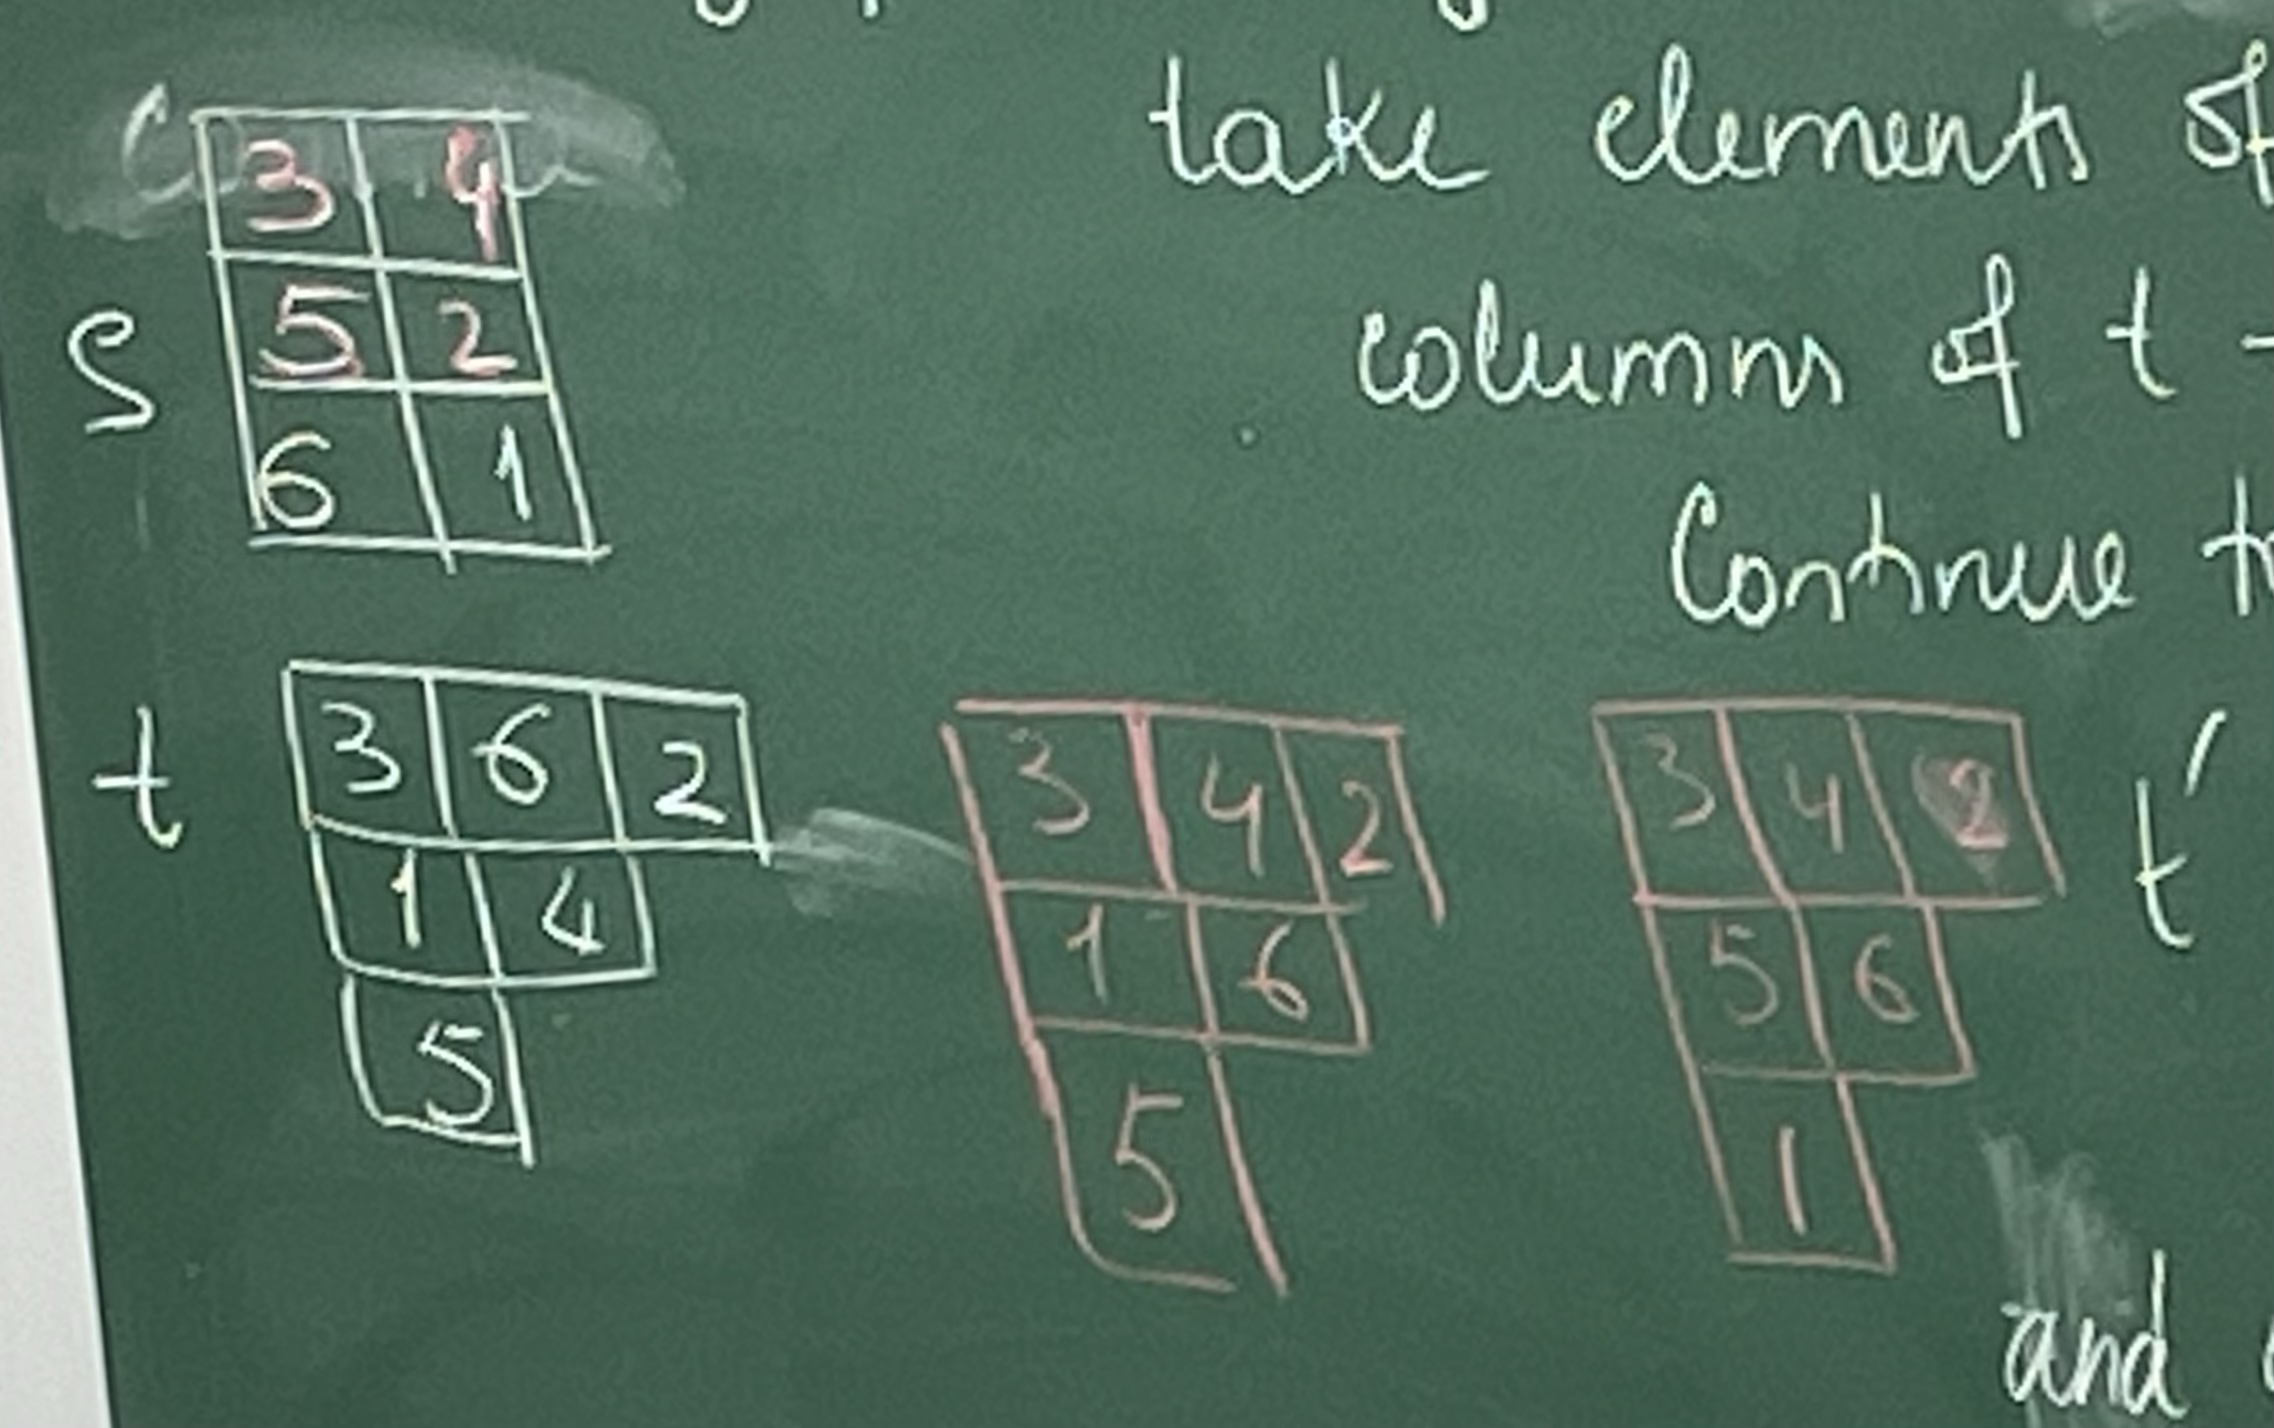 take elements of
3 4
S
5 2
columns of t -
6 1
Continue
t
3 6 2
1 4
5
3 4 2
1 6
5
3 4 2
5 6
1
t'
and